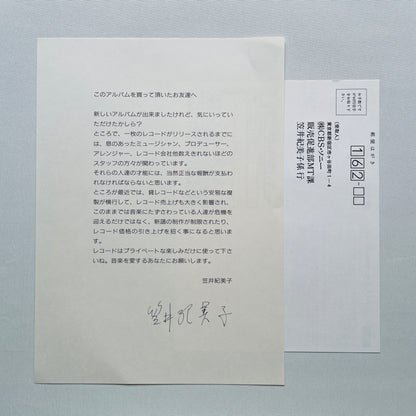 このアルバムを買って頂いたお友達へ
新しいアルバムが出来ましたけれど、気にいってい
ただけたかしら？
ところで、一枚のレコードがリリースされるまでに
は、息のあったミュージシャン、プロデューサー、
アレンジャー、レコード会社他数えきれないほどの
スタッフの方々が関わっています。
それらの人達の才能には、当然正当な報酬が支払わ
れなければならないと思います。
ところが最近では、貸レコードなどという安易な複
製が横行して、レコード売上げも大きく影響され、
このままでは音楽にたずさわっている人達が危機を
迎えるだけではなく、新譜の制作が制限されたり、
レコード価格の引き上げを招く事になると思いま
す。
レコードはプライベートな楽しみだけに使って下さ
いね。音楽を愛するあなたにお願いします。
笠井紀美子
笠井紀美子
郵便はがき
162-
東京都新宿区市ヶ谷田町1-4
㈱CBS・ソニー
販売促進部MT課
笠井紀美子係行